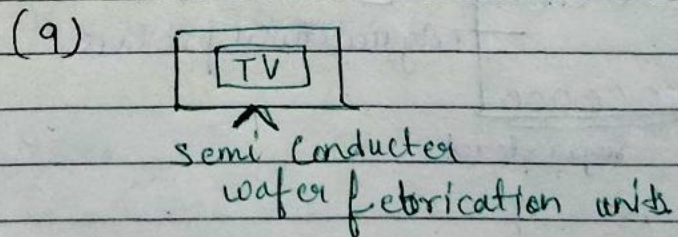 (9)
TV
semi conducter
wafer febrication units